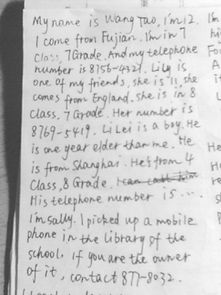 My name is Wang Tao, I'm 12.
I come from Fujian. I'm in 7
Class, 7 Grade. And my telephone
number is 8756-4321. Lily is
one of my friends, she is 11, she
comes from England. She is in 8
Class. 7 Grade. Her number is
8769-5419. Li Lei is a boy. He
is one year elder than me. He
is from Shanghai. He's from 4
Class, 8 Grade.
His telephone number is ...
I'm Sally. I picked up a mobile
phone in the library of the
school, if you are the owner
of it, contact 877-8032.